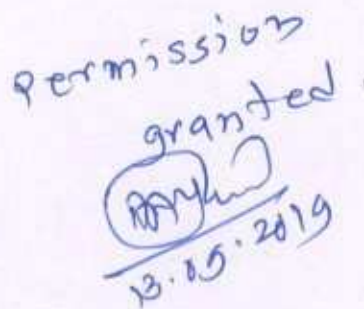 permission
granted
13.05.2019